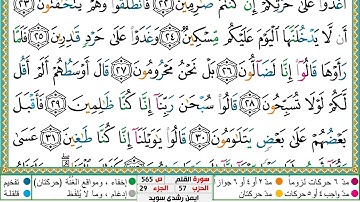 ٱغۡدُواْ عَلَىٰ حَرۡثِكُمۡ إِن كُنتُمۡ صَٰرِمِينَ ٢٢ فَٱنطَلَقُواْ وَهُمۡ يَتَخَٰفَتُونَ ٢٣
أَن لَّا يَدۡخُلَنَّهَا ٱلۡيَوۡمَ عَلَيۡكُم مِّسۡكِينٞ ٢٤ وَغَدَوۡاْ عَلَىٰ حَرۡدٖ قَٰدِرِينَ ٢٥ فَلَمَّا
رَأَوۡهَا قَالُوٓاْ إِنَّا لَضَآلُّونَ ٢٦ بَلۡ نَحۡنُ مَحۡرُومُونَ ٢٧ قَالَ أَوۡسَطُهُمۡ أَلَمۡ أَقُل
لَّكُمۡ لَوۡلَا تُسَبِّحُونَ ٢٨ قَالُواْ سُبۡحَٰنَ رَبِّنَآ إِنَّا كُنَّا ظَٰلِمِينَ ٢٩ فَأَقۡبَلَ
بَعۡضُهُمۡ عَلَىٰ بَعۡضٖ يَتَلَٰوَمُونَ ٣٠ قَالُواْ يَٰوَيۡلَنَآ إِنَّا كُنَّا طَٰغِينَ ٣١ عَسَىٰ
مدّ ٦ حركات لزوماً مدّ ٢ أو ٤ أو ٦ جوازاً سورة القلم ص 565 إخفاء، ومواقع الغنّة (حركتان) تفخيم
مدّ واجب ٤ أو ٥ حركات مدّ حركتان الحزب 57 الجزء 29 أيمن رشدي سويد إدغام، وما لا يُلفظ قلقلة